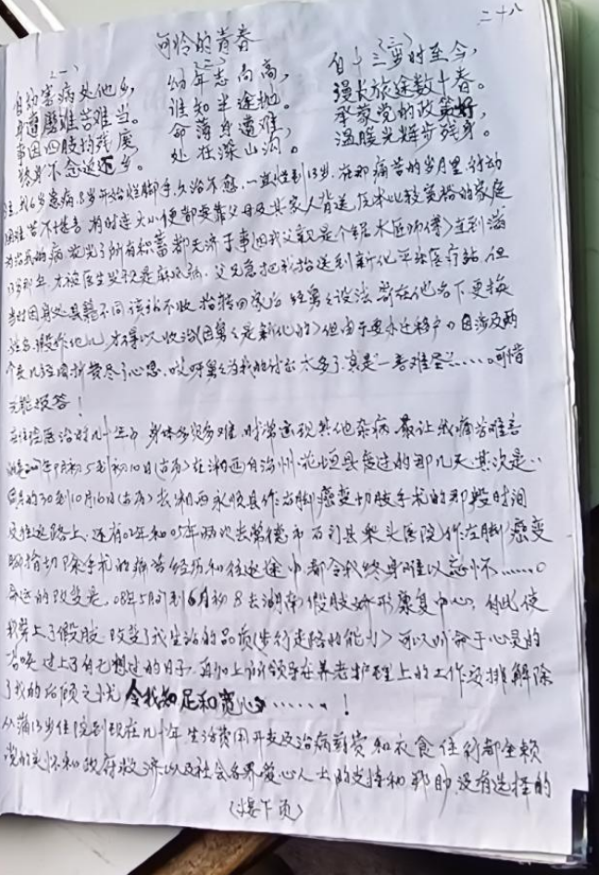 二十八
可怜的青春
(一)
自幼害病处他乡，
身遭磨难苦难当。
事因四肢均残废，
终身不念返还乡。
(二)
幼年志向高，
谁知半途抛。
命薄身遭难，
处在深山沟。
(三)
自十三岁时至今，
漫长旅途数十春。
承蒙党的政策好，
温暖光辉步残身。
注：我6岁患病，8岁开始烂脚手，久治不愈，一直拖到13岁，在那痛苦的岁月里，行动
困难苦不堪言，有时连大小便都要靠父母及其家人背送，原本比较宽裕的家庭
为治我的病，花光了所有积蓄都无济于事（因我父亲是个锯木匠师傅）直到满
13岁那年，才被医生发现是麻风病，父兄急把我抬送到新化平乐医疗站，但
当时因身处县籍不同该站不收，抬转回家后，经舅父设法寄在他名下更换
姓名，假作他儿，才得以收治（因舅父是新化的）但由于要办迁移户口，且涉及两
个县，几经周折费尽了心思，哎呀舅父为我的付出太多了，真是"一言难尽"……可惜
无能报答！
在住院医治的几十年中，身体多灾多难，时常出现其他杂病，最让我痛苦难言
的是 年9月初5到初10日(古历)在湘西自治州花垣县度过的那几天，其次是
的30到10月16日(古历)去湘西永顺县作右脚癌变切肢手术的那段时间
及往返路上，还有02年和05年两次去常德市石门县 医院作左脚癌变
脚指切除手术的痛苦经历和往返途中，都令我终身难以忘怀……。
命运的改变是，08年5月 到6月初8去湖南假肢矫形康复中心，从此使
我穿上了假肢，改变了我生活的品质(步行走路的能力)可以听命于心灵的
召唤，过上了自己想过的日子，再加上 领导在养老护理上的工作安排解除
了我的后顾之忧，令我知足和宽心……！
从满13岁住院到现在几十年，生活费用开支及治病药费和衣食住行都全赖
党的关怀和政府救济以及社会各界爱心人士的支持和帮助，没有选择的
(接下页)